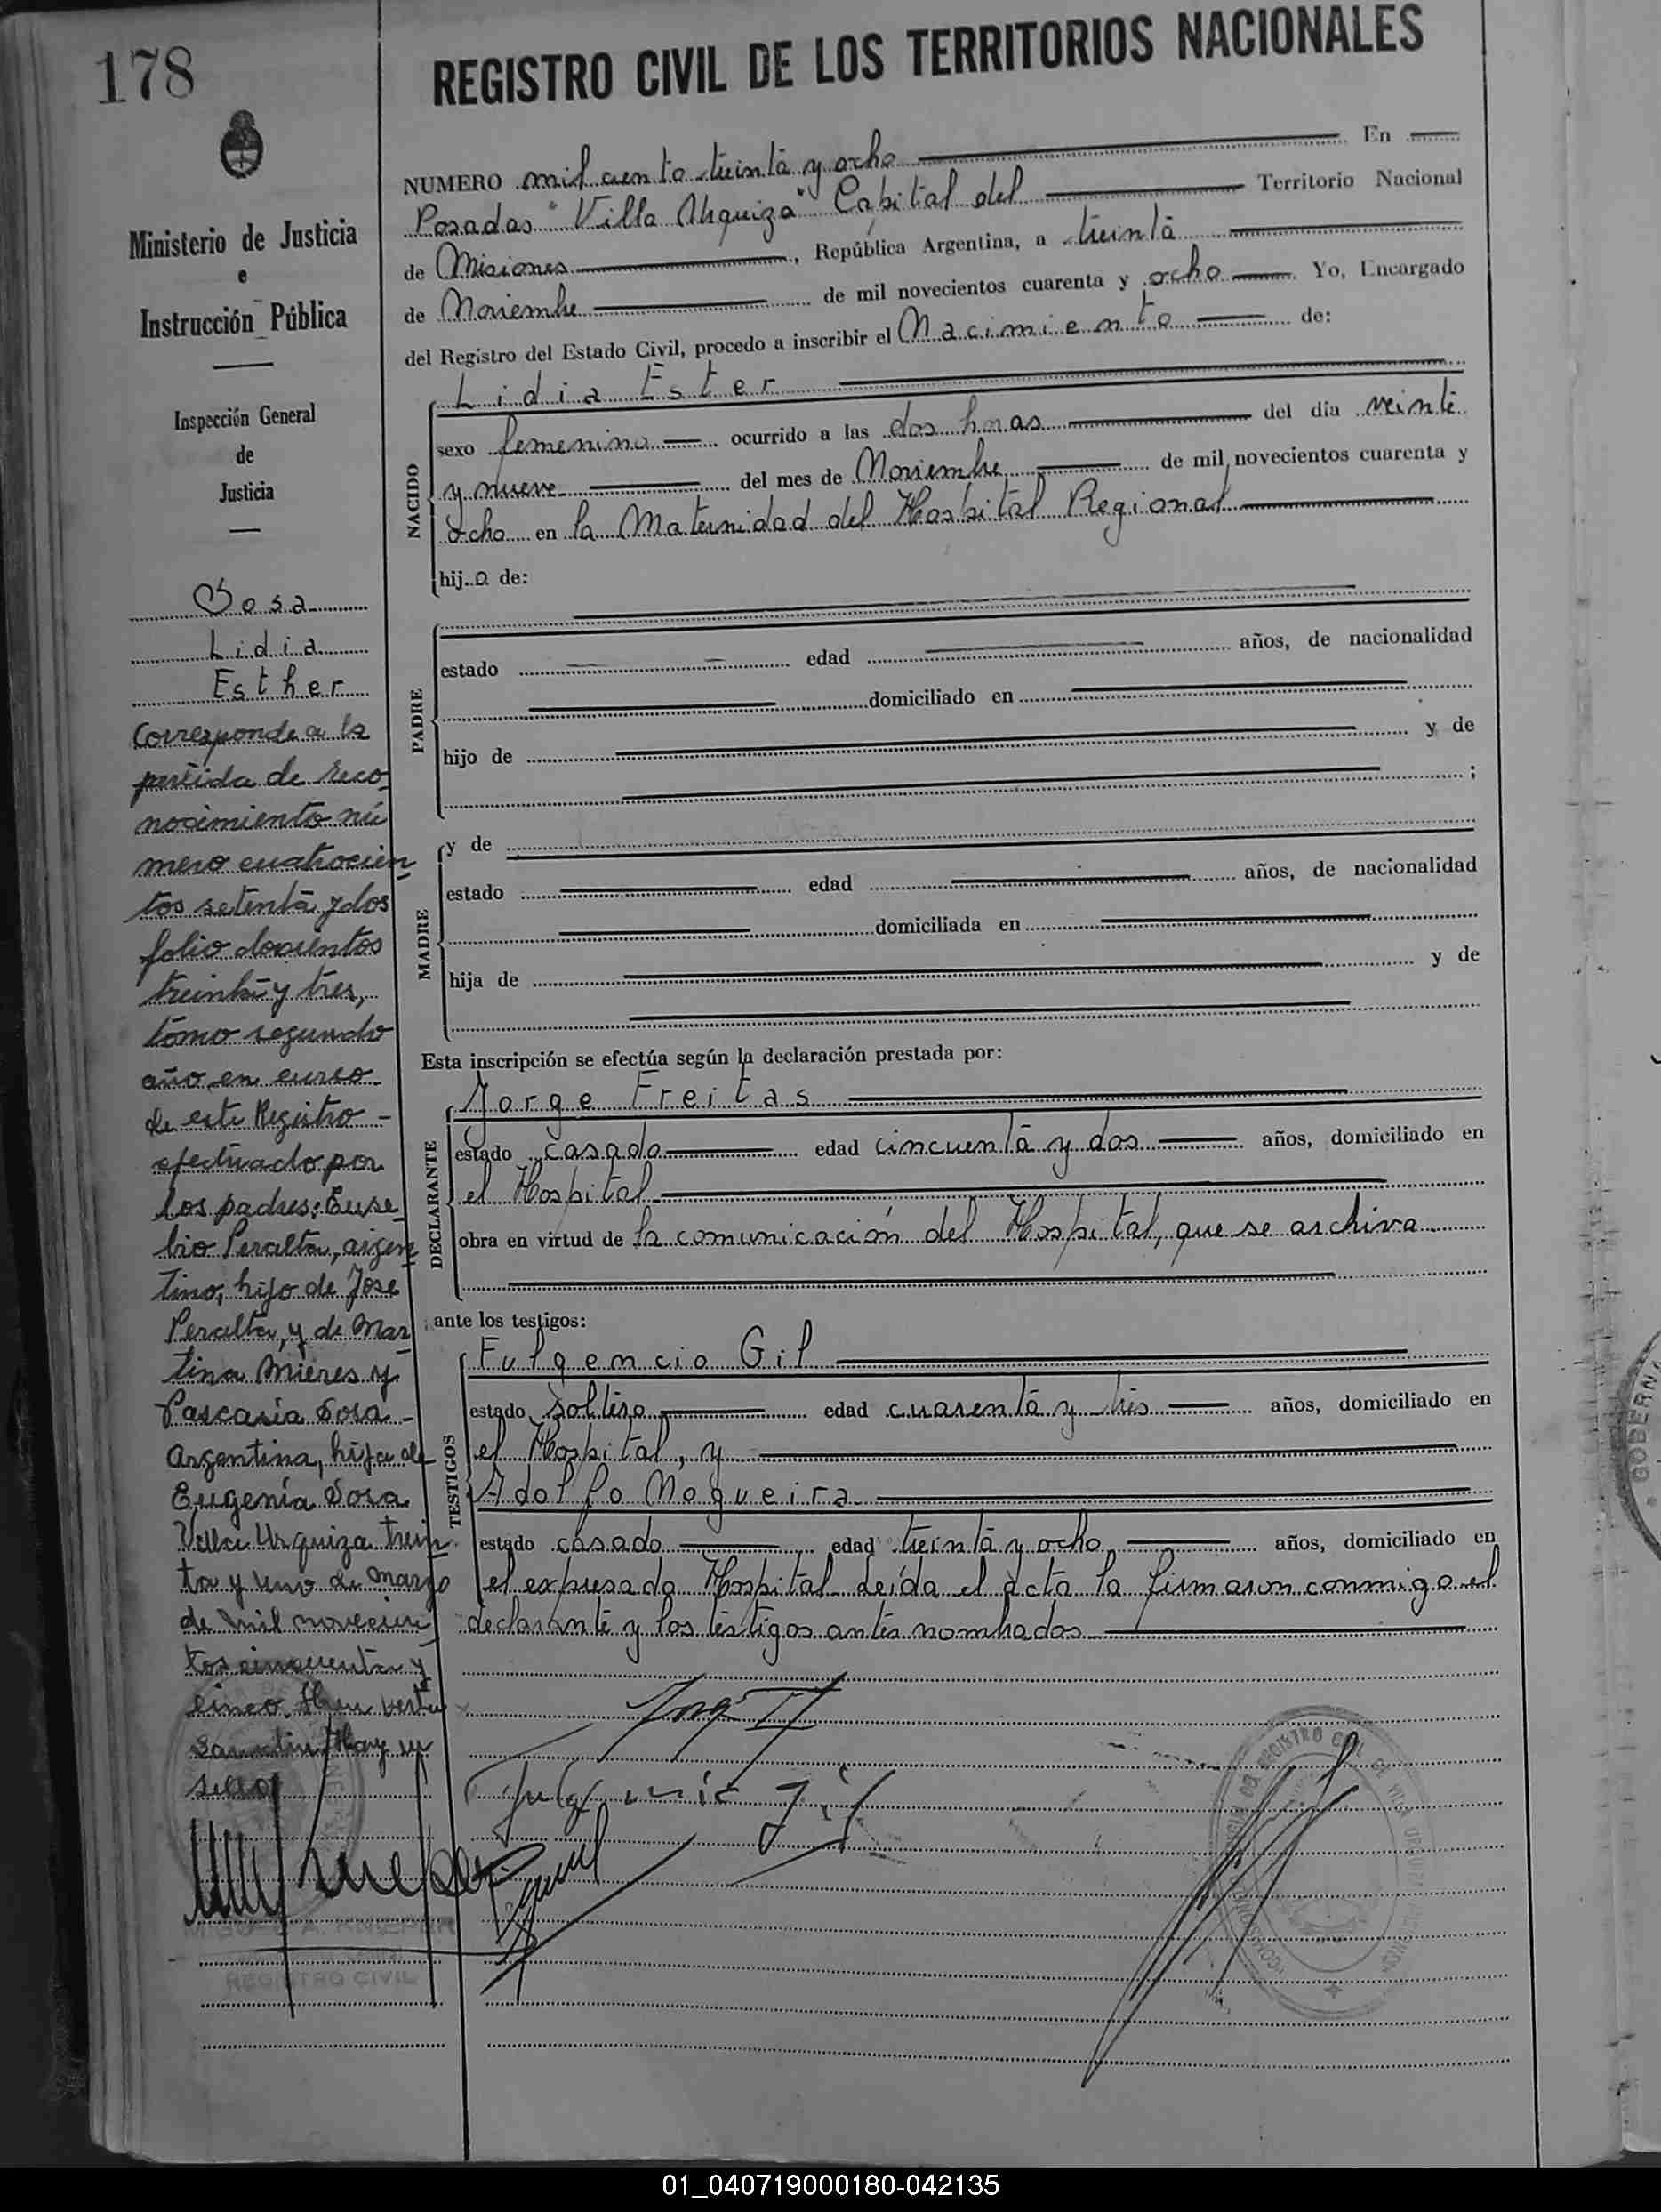 178
REGISTRO CIVIL DE LOS TERRITORIOS NACIONALES
Ministerio de Justicia
e
Instrucción Pública
Inspección General
de
Justicia
Sosa
Lidia
Esther
Corresponde a la
partida de reco-
nocimiento nú
mero cuatrocien
tos setenta y dos
folio doscientos
treinta y tres,
tomo segundo
año en curso
de este Registro -
efectuado por
los padres: Euse
bio Peralta, argen
tino, hijo de Jose
Peralta, y de Mar
tina Mieres y
Pascasia Sosa -
Argentina, hija de
Eugenia Sosa
Villa Urquiza trein
ta y uno de Marzo
de mil novecien
tos cincuenta y
cinco.
Hay un
sello
MIGUEL A. KNEPER
REGISTRO CIVIL
NUMERO mil ciento treinta y ocho En
Posadas "Villa Urquiza" Capital del Territorio Nacional
de Misiones, República Argentina, a treinta
de Noviembre de mil novecientos cuarenta y ocho. Yo, Encargado
del Registro del Estado Civil, procedo a inscribir el Nacimiento de:
NACIDO
Lidia Ester
sexo femenino ocurrido a las dos horas del día veinte
y nueve del mes de Noviembre de mil novecientos cuarenta y
ocho en la Maternidad del Hospital Regional
hija de:
PADRE
estado edad años, de nacionalidad
domiciliado en
hijo de y de
;
MADRE
y de
estado edad años, de nacionalidad
domiciliada en
hija de y de
Esta inscripción se efectúa según la declaración prestada por:
DECLARANTE
Jorge Freitas
estado casado edad cincuenta y dos años, domiciliado en
el Hospital
obra en virtud de la comunicación del Hospital, que se archiva
ante los testigos:
TESTIGOS
Fulgencio Gil
estado soltero edad cuarenta y tres años, domiciliado en
el Hospital, y
Adolfo Nogueira
estado casado edad treinta y ocho años, domiciliado en
el expresado Hospital. Leída el acta la firmaron conmigo el
declarante y los testigos antes nombrados
Fulgencio Gil
01_040719000180-042135